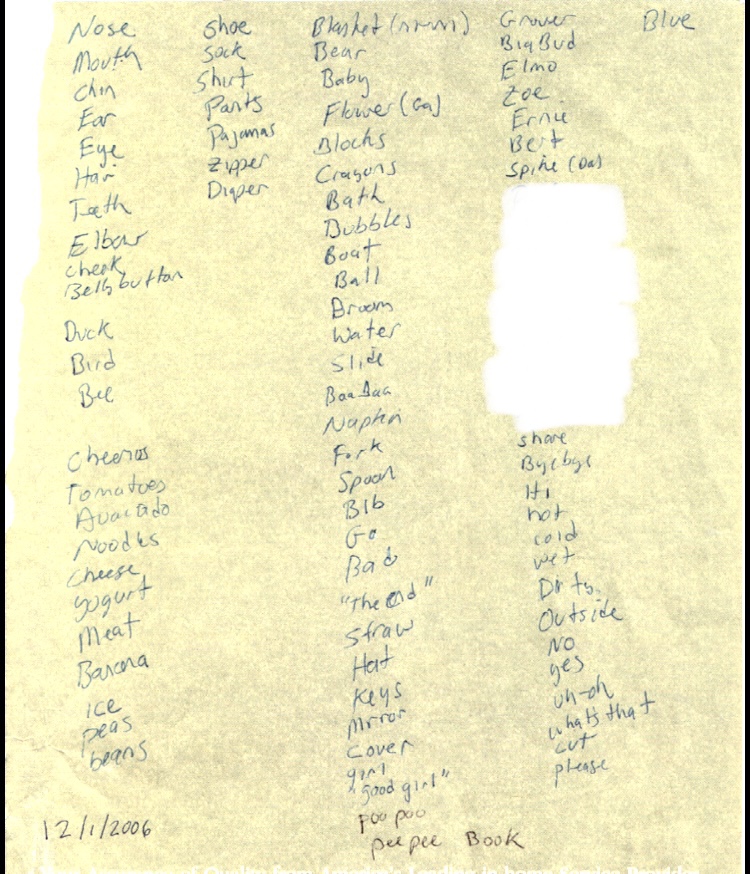 Nose
Mouth
Chin
Ear
Eye
Hair
Teeth
Elbow
cheek
Bellybutton
Duck
Bird
Bee
Cheerios
Tomatoes
Avacado
Noodles
Cheese
yogurt
Meat
Banana
ice
peas
beans
12/1/2006
Shoe
Sock
Shirt
Pants
Pajamas
Zipper
Diaper
Blanket
Bear
Baby
Flower (Ga)
Blocks
Crayons
Bath
Bubbles
Boat
Ball
Broom
Water
Slide
Baa Baa
Napkin
Fork
Spoon
Bib
Go
Bad
"The End"
Straw
Hat
Keys
Mirror
Cover
girl
"good girl"
poo poo
peepee Book
Grover
Big Bird
Elmo
Zoe
Ernie
Bert
Spike (Da)
share
Byebye
Hi
hot
cold
wet
Dirty
Outside
No
yes
uh-oh
whats that
cut
please
Blue